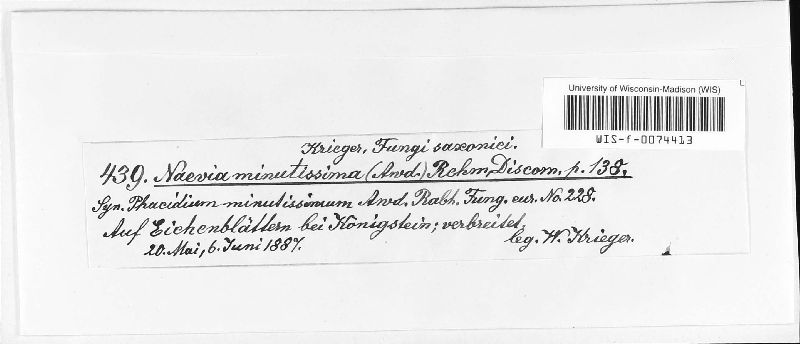 University of Wisconsin-Madison (WIS)
WIS-f-0074413
Krieger, Fungi saxonici.
439. Naevia minutissima (Awd.) Rehm, Discom. p. 138.
Syn. Phacidium minutissimum Awd. Rabh. Fung. eur. No. 228.
Auf Eichenblättern bei Königstein; verbreitet
20. Mai, 6. Juni 1887. leg. W. Krieger.